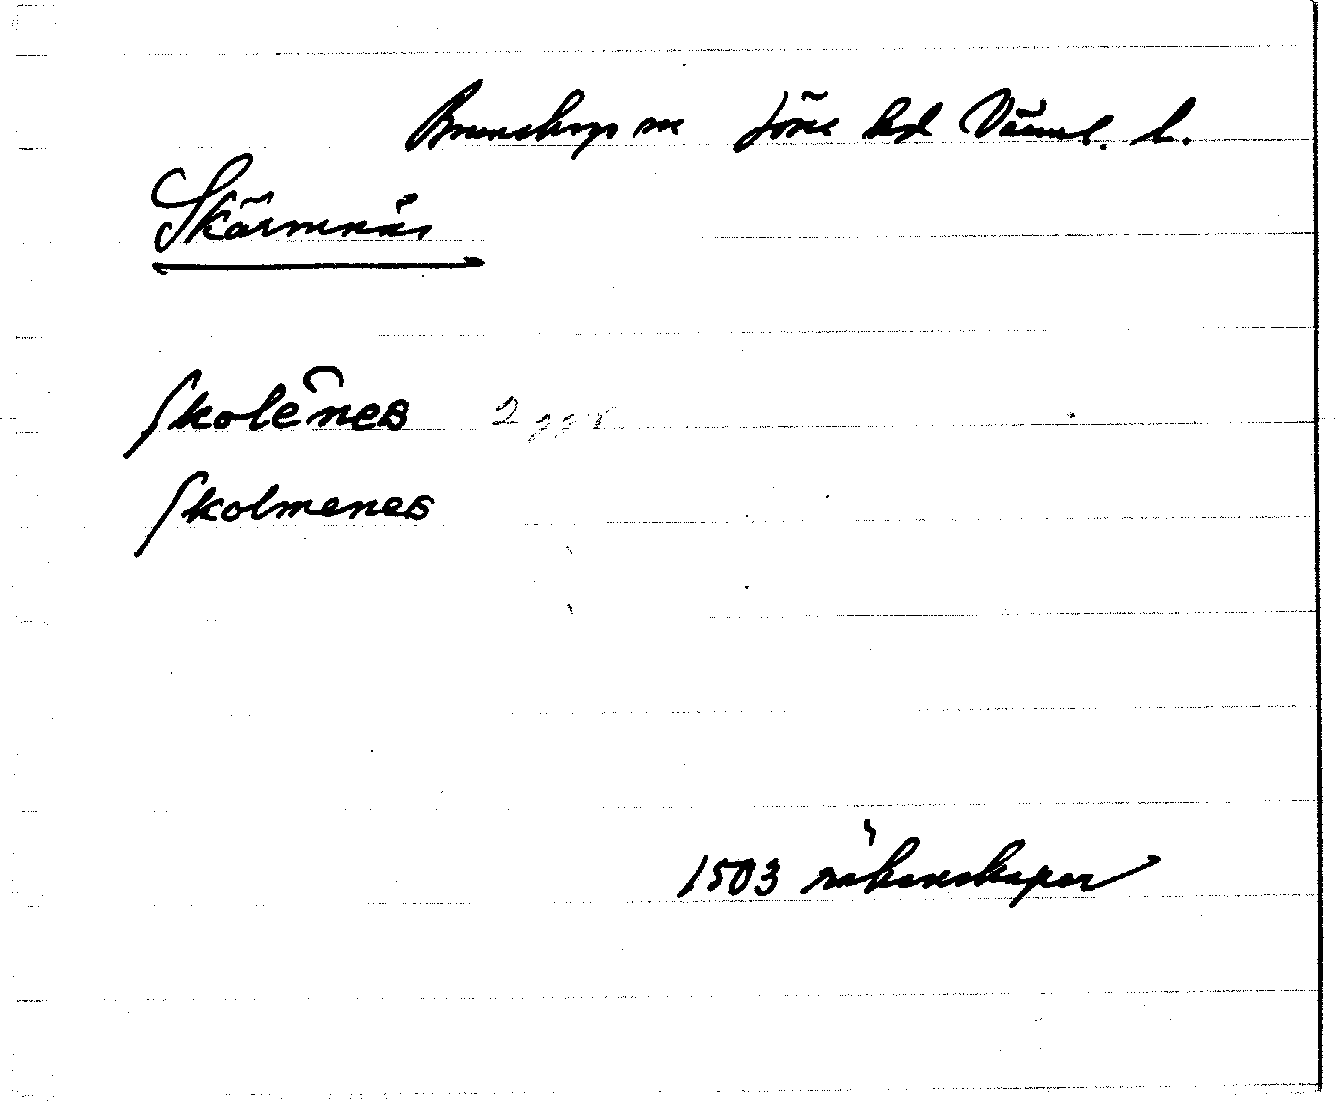 Brunskog sn Jösse hd Värml. l.
Skärmnäs
Skolēnes 2 ggr
Skolmenes
1503 räkenskaper